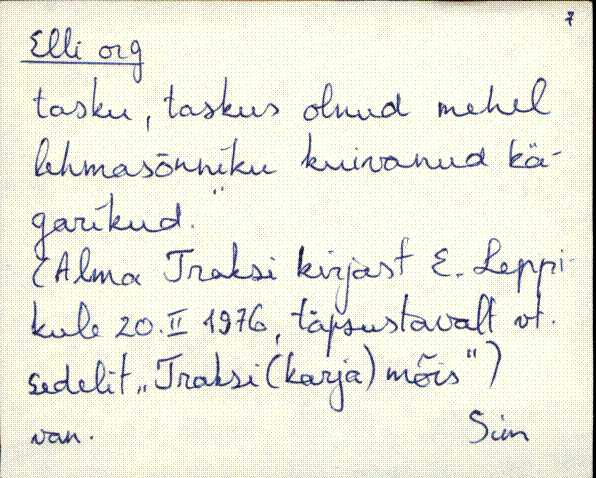 7
Elli org
tasku, taskus olnud mehel
lehmasõnniku kuivanud kä-
garikud."
(Alma Traksi kirjast E. Leppi-
kule 20.II 1976, täpsustavalt vt.
sedelit „Traksi (karja) mõis")
van. Sim